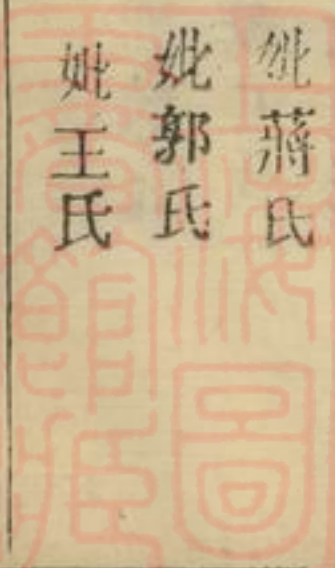 妣蔣氏
妣郭氏
妣王氏